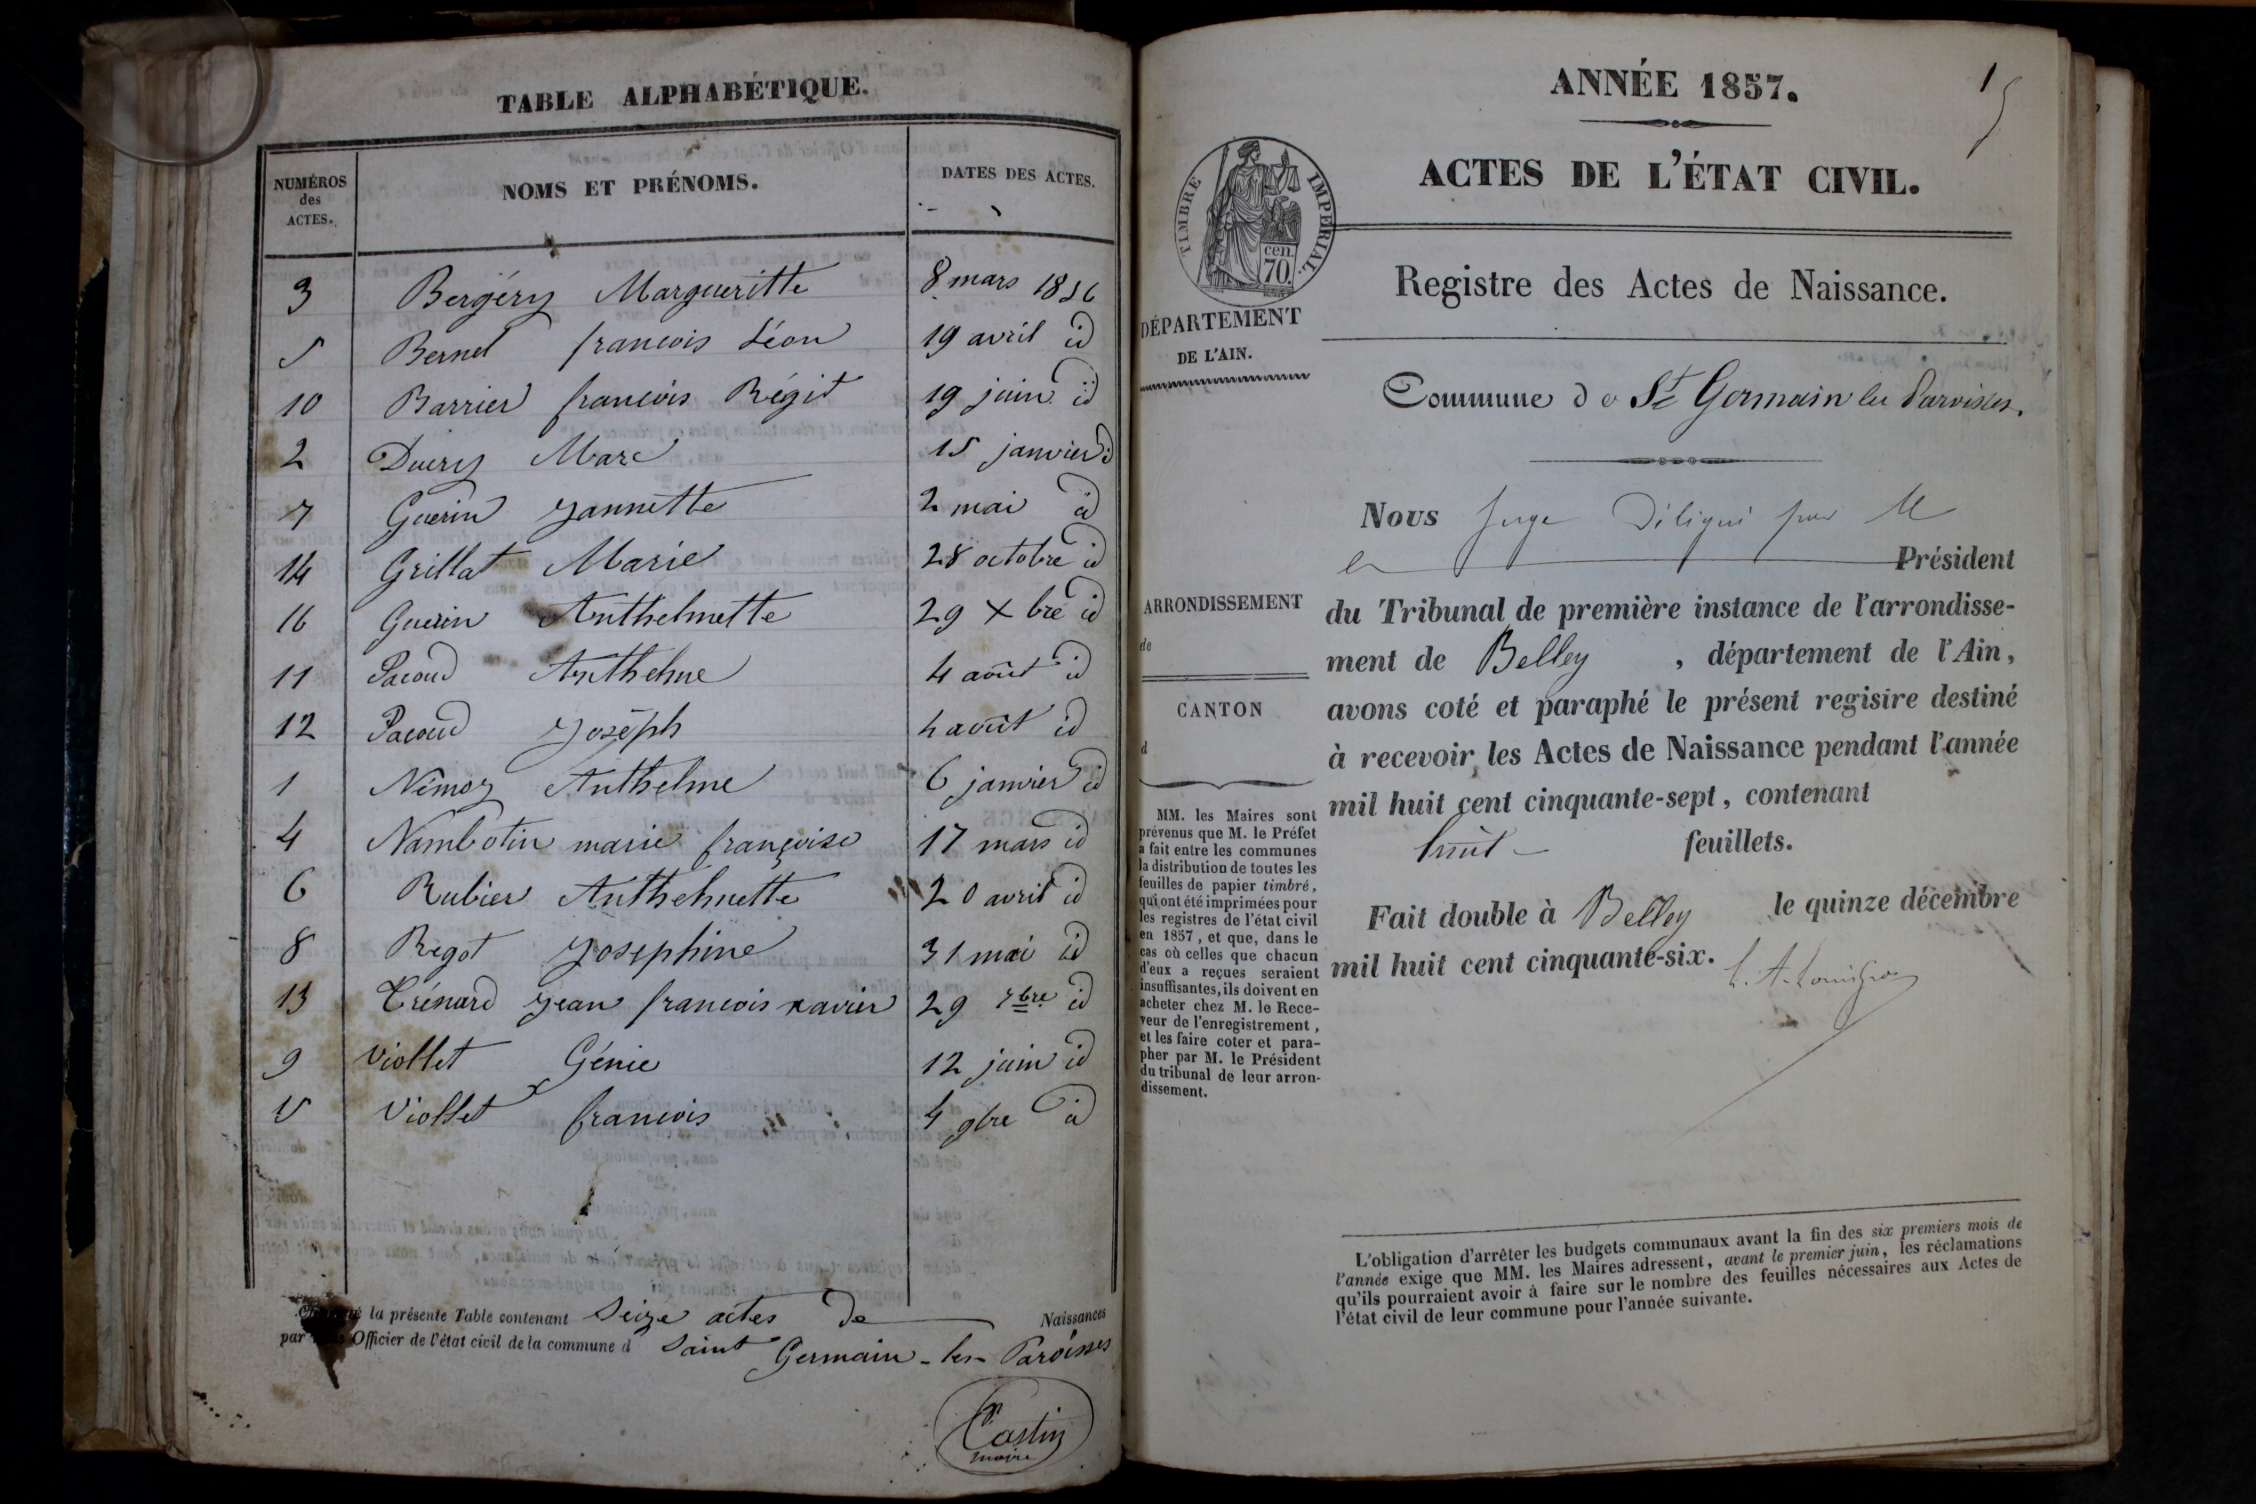 TABLE ALPHABÉTIQUE.
NUMÉROS
des
ACTES.
NOMS ET PRÉNOMS.
DATES DES ACTES.
3 Bergéry Margueritte 8 mars 1856
5 Bernel francois Léon 19 avril id
10 Barrier francois Régit 19 juin id
2 Duery Marc 15 janvier id
7 Guerin Jannette 2 mai id
14 Grillat Marie 28 octobre id
16 Guerin Anthelmette 29 Xbre id
11 Pacoud Anthelme 4 août id
12 Pacoud Joséph 4 août id
1 Némoz Anthelme 6 janvier id
4 Nambotin marie françoise 17 mars id
6 Rubier Anthelmette 20 avril id
8 Regot Josephine 31 mai id
13 Trénard Jean francois xavier 29 7bre id
9 Viollet Génie 12 juin id
Viollet francois 4 9bre id
la présente Table contenant Seize actes de Naissances
par Officier de l'état civil de la commune d Saint Germain-les-Paroisses
Castin
maire
ANNÉE 1857.
ACTES DE L'ÉTAT CIVIL.
TIMBRE IMPÉRIAL.
cen.
70.
Registre des Actes de Naissance.
DÉPARTEMENT
DE L'AIN.
Commune de St Germain les Paroisses.
Nous Juge Délégué par M
le Président
du Tribunal de première instance de l'arrondisse-
ment de Belley , département de l'Ain,
avons coté et paraphé le présent registre destiné
à recevoir les Actes de Naissance pendant l'année
mil huit cent cinquante-sept, contenant
huit feuillets.
Fait double à Belley le quinze décembre
mil huit cent cinquante-six.
ARRONDISSEMENT
de
CANTON
d
MM. les Maires sont
prévenus que M. le Préfet
a fait entre les communes
la distribution de toutes les
feuilles de papier timbré,
qui ont été imprimées pour
les registres de l'état civil
en 1857, et que, dans le
cas où celles que chacun
d'eux a reçues seraient
insuffisantes, ils doivent en
acheter chez M. le Rece-
veur de l'enregistrement,
et les faire coter et para-
pher par M. le Président
du tribunal de leur arron-
dissement.
L'obligation d'arrêter les budgets communaux avant la fin des six premiers mois de
l'année exige que MM. les Maires adressent, avant le premier juin, les réclamations
qu'ils pourraient avoir à faire sur le nombre des feuilles nécessaires aux Actes de
l'état civil de leur commune pour l'année suivante.